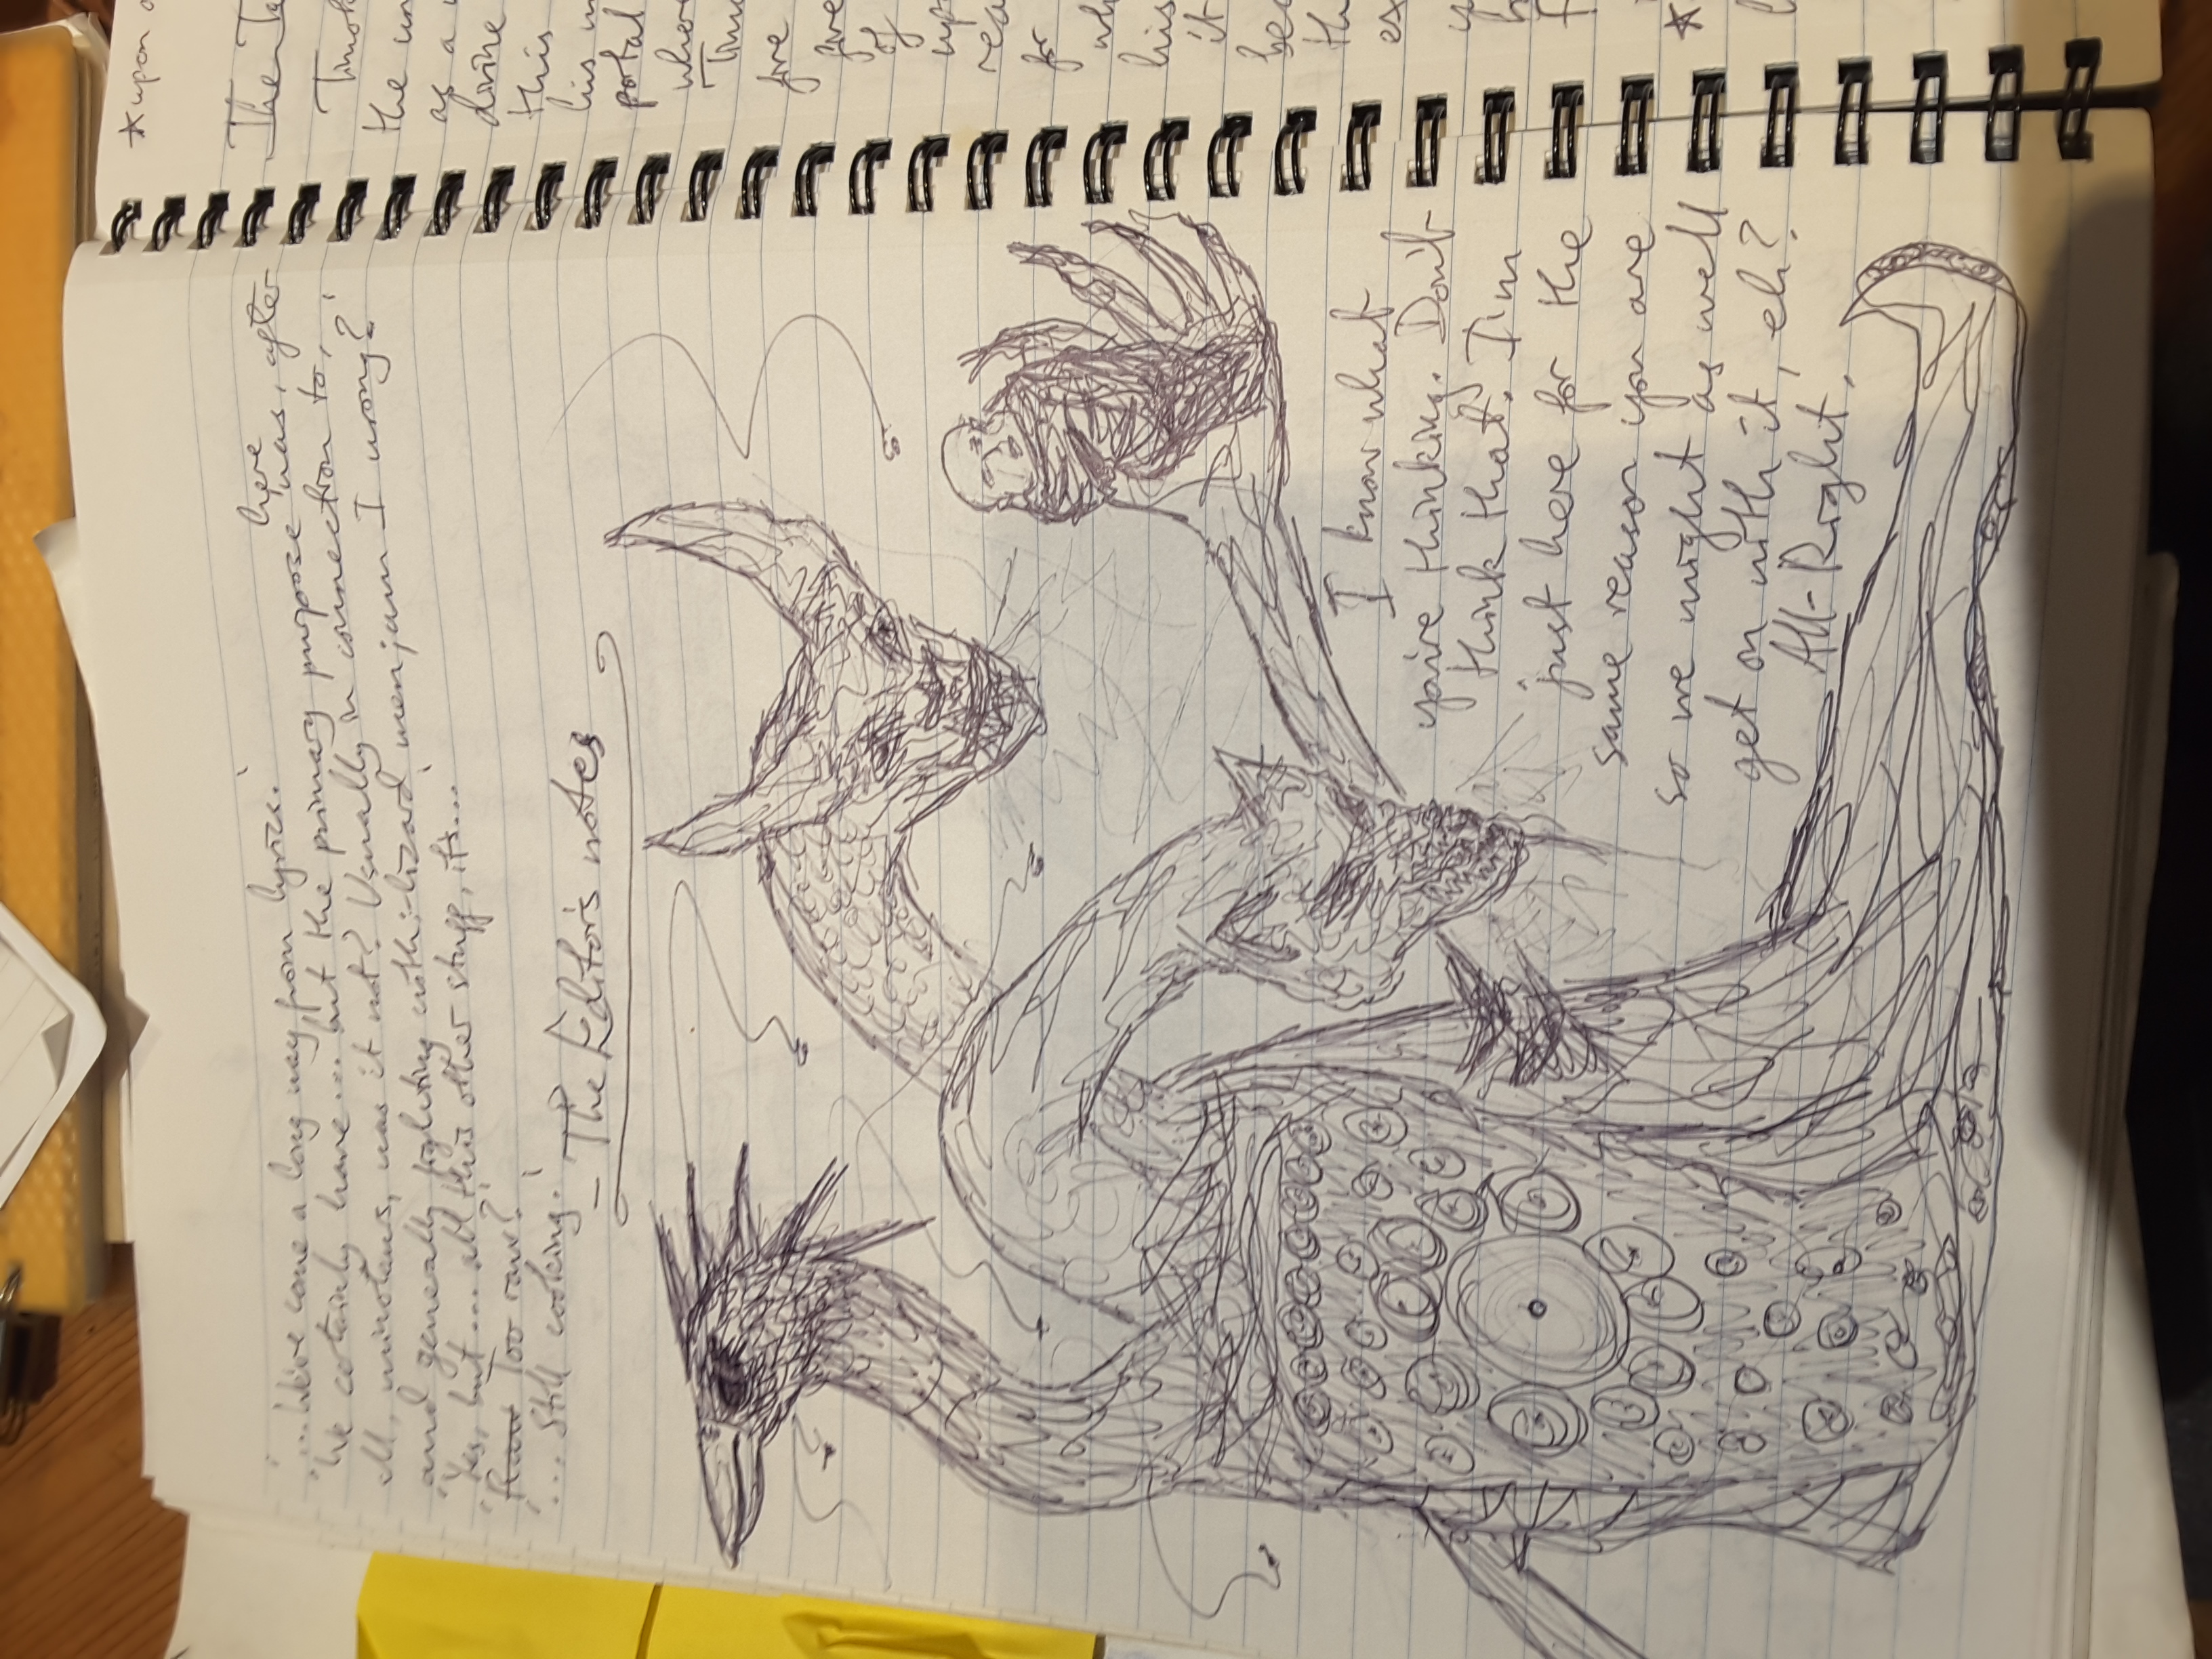 '...We've come a long way from lyrics.'
here
'We certainly have... but the primary purpose was, after
all, minotaurs, was it not? Usually in connection to,
and generally fighting with:-lizard men; am I wrong?'
'Yes, but... all this other stuff, it's...'
'Raw Too raw?'
'... Still cooking.'
- The Editor's notes
I know what
you're thinking. Don't
think that. I'm
just here for the
same reason you are
so we might as well
get on with it, eh?
All-Right.
*upon
The
the
as a
divine
this
his
portal
where
fire
of
for
his
it
*